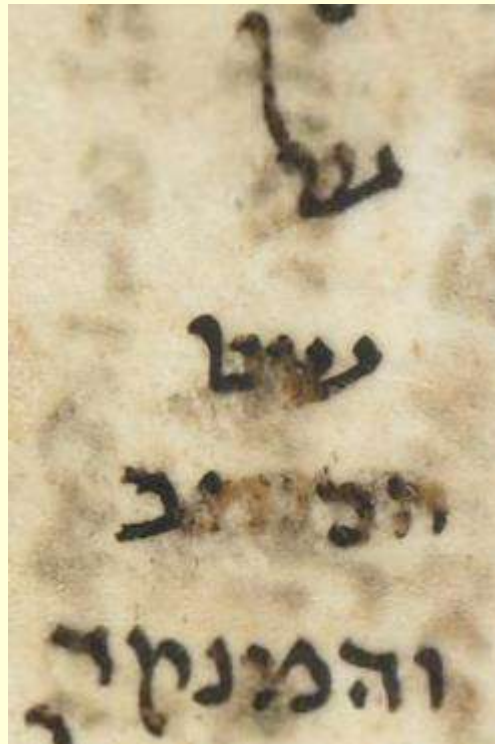 של
הכותב
והמנקד